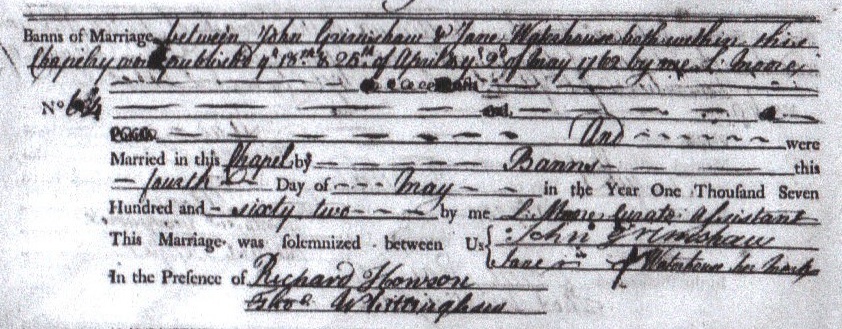 Banns of Marriage between John Grimshaw & Jane Waterhouse both within this
Chapelry were published ye 18th & 25th of April & ye 2d of May 1762 by me L: Moore
No
and
And were
Married in this Chapel by Banns this
fourth Day of May in the Year One Thousand Seven
Hundred and sixty two by me L: Moore Curate Assistant
This Marriage was solemnized between Us John Grimshaw
Jane Waterhouse her mark
In the Presence of Richard Howson
Whittingham